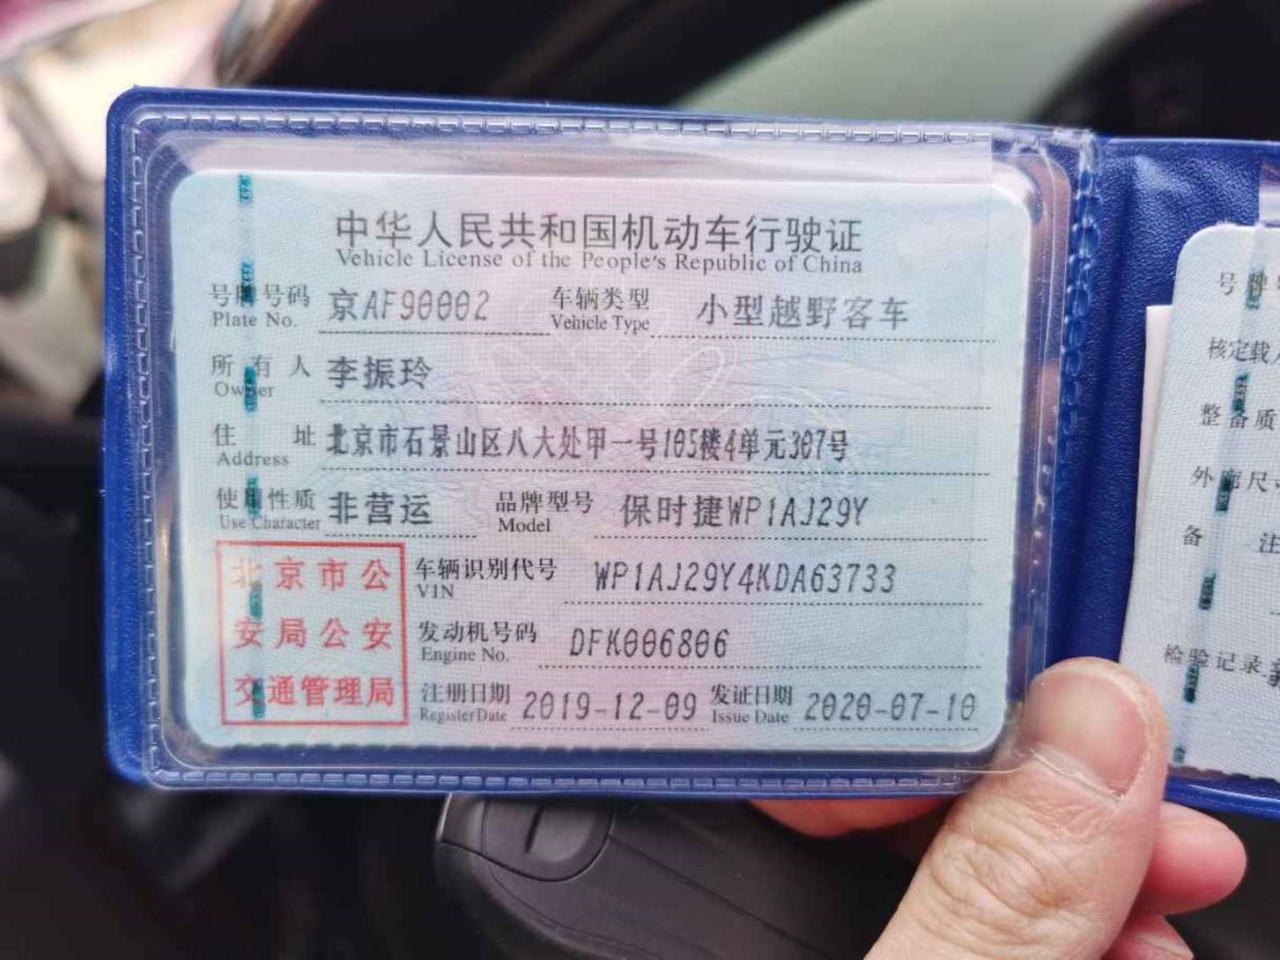 中华人民共和国机动车行驶证
Vehicle License of the People's Republic of China
号牌号码 京AF90002 车辆类型 小型越野客车
Plate No. Vehicle Type
所有人 李振玲
Owner
住址 北京市石景山区八大处甲一号105楼4单元307号
Address
使用性质 非营运 品牌型号 保时捷WP1AJ29Y
Use Character Model
北京市公
安局公安
交通管理局
车辆识别代号 WP1AJ29Y4KDA63733
VIN
发动机号码 DFK006806
Engine No.
注册日期 2019-12-09 发证日期 2020-07-10
Register Date Issue Date
号牌
核定载
整备质
外廓尺
备 注
检验记录